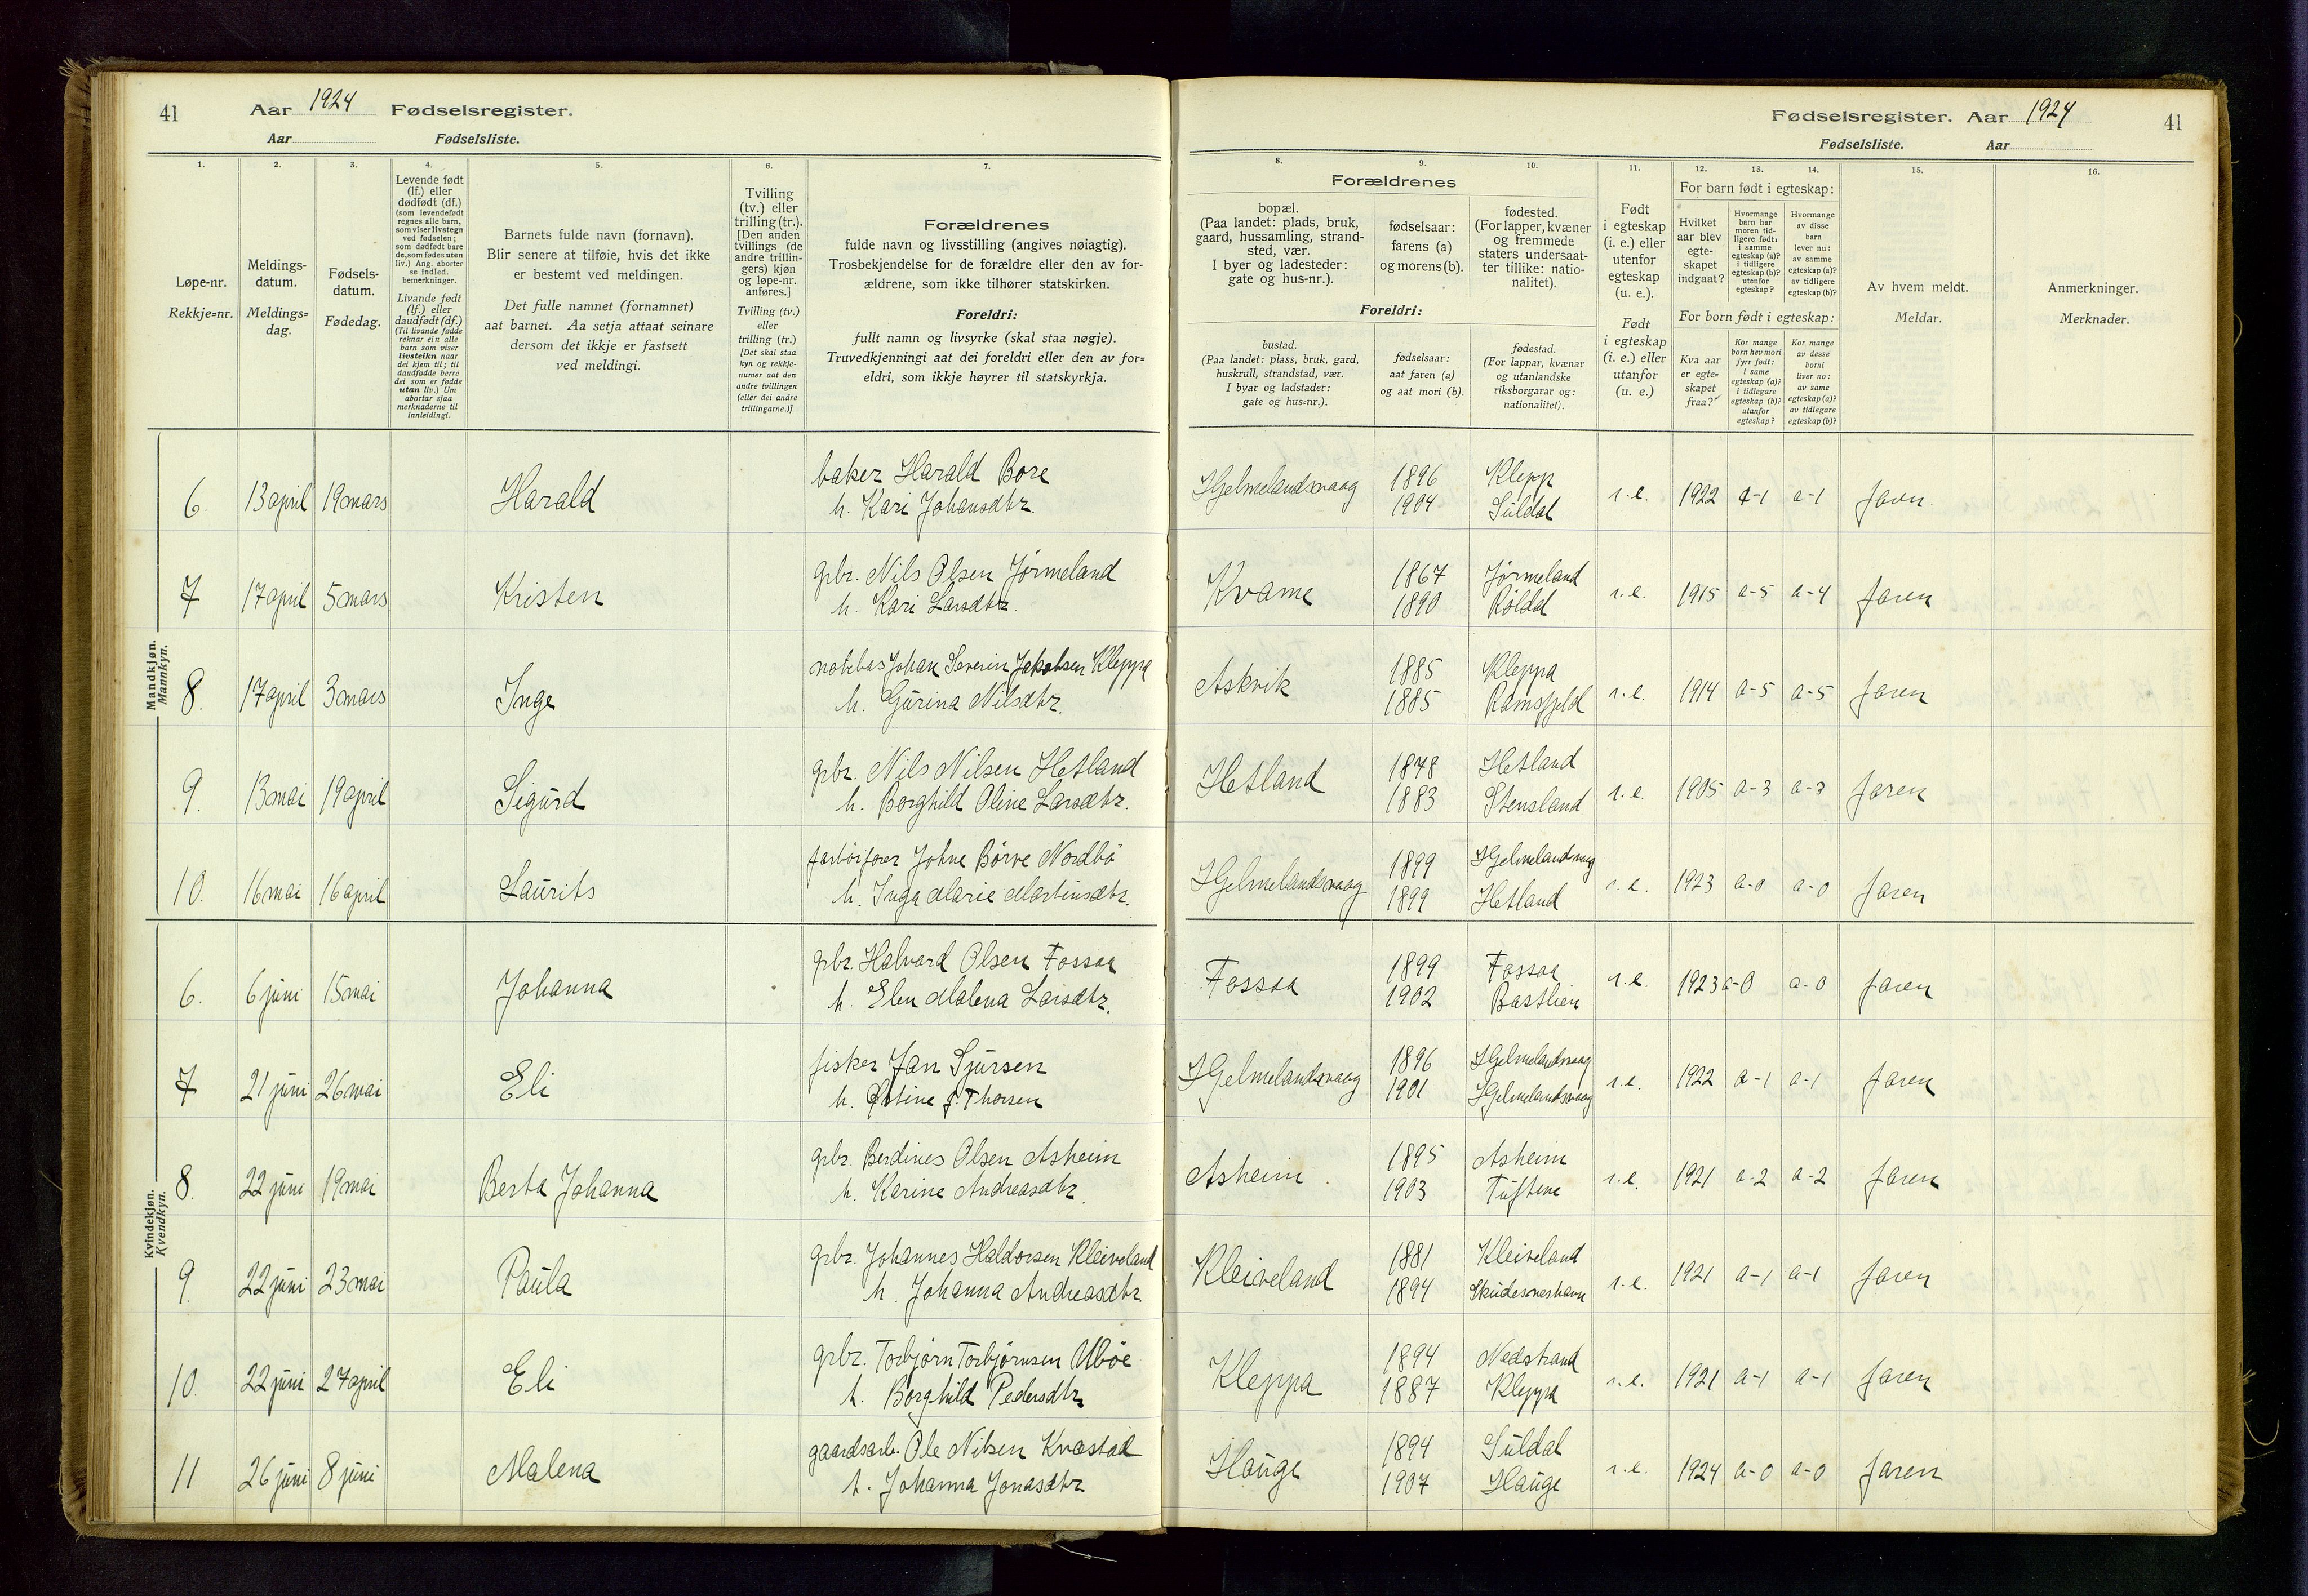 41 Aar 1924 Fødselsregister.
Aar Fødselsliste.
Fødselsregister. Aar 1924 41
Fødselsliste. Aar
1. 2. 3. 4. 5. 6. 7.
8. 9. 10. 11. 12. 13. 14. 15. 16.
Løpe-nr.
Rekkje=nr.
Meldings-
datum.
Meldings=
dag.
Fødsels-
datum.
Fødedag.
Levende født
(lf.) eller
dødfødt (df.)
(som levendefødt
regnes alle barn,
som viser livstegn
ved fødselen;
som dødfødt bare
de, som fødes uten
liv.) Ang. aborter
se indled.
bemerkninger.
Livande født
(lf.) eller
daudfødt (df.)
(Til livande fødde
reknar ein alle
barn som viser
livsteikn naar
dei kjem til; til
daudfødde berre
dei som er fødde
utan liv.) Um
abortar sjaa
merknaderne til
innleidingi.
Barnets fulde navn (fornavn).
Blir senere at tilføie, hvis det ikke
er bestemt ved meldingen.
Det fulle namnet (fornamnet)
aat barnet. Aa setja attaat seinare
dersom det ikkje er fastsett
ved meldingi.
Tvilling
(tv.) eller
trilling (tr.).
[Den anden
tvillings (de
andre trillin-
gers) kjøn
og løpe-nr.
anføres.]
Tvilling (tv.)
eller
trilling (tr.)
[Det skal staa
kyn og rekkje-
numer aat den
andre tvillingen
(eller dei andre
trillingarne.)]
Forældrenes
fulde navn og livsstilling (angives nøiagtig).
Trosbekjendelse for de forældre eller den av for-
ældrene, som ikke tilhører statskirken.
Foreldri:
fullt namn og livsyrke (skal staa nøgje).
Truvedkjenningi aat dei foreldri eller den av for=
eldri, som ikkje høyrer til statskyrkja.
Forældrenes
bopæl.
(Paa landet: plads, bruk,
gaard, hussamling, strand-
sted, vær.
I byer og ladesteder:
gate og hus-nr.).
fødselsaar:
farens (a)
og morens (b).
fødested.
(For lapper, kvæner
og fremmede
staters undersaat-
ter tillike: natio-
nalitet).
Foreldri:
bustad.
(Paa landet: plass, bruk, gard,
huskrull, strandstad, vær.
I byar og ladstader:
gate og hus=nr.).
fødselsaar:
aat faren (a)
og aat mori (b).
fødestad.
(For lappar, kvænar
og utanlandske
riksborgarar og:
nationalitet).
Født
i egteskap
(i. e.) eller
utenfor
egteskap
(u. e.).
Født
i egteskap
(i. e.) eller
utanfor
(u. e.)
For barn født i egteskap:
Hvilket
aar blev
egte-
skapet
indgaat?
Hvormange
barn har
moren tid-
ligere født:
i samme
egteskap (a)?
i tidligere
egteskap (b)?
utenfor
egteskap?
Hvormange
av disse
barn
lever nu:
av samme
egteskap (a)?
av tidligere
egteskap (b)?
For born født i egteskap:
Kva aar
er egte=
skapet
fraa?
Kor mange
born hev mori
fyrr født:
i same
egteskap (a)?
i tidlegare
egteskap (b)?
utanfor
egteskap?
Kor mange
av desse
borni
liver no:
av same
egteskap (a)?
av tidlegare
egteskap (b)?
Av hvem meldt.
Meldar.
Anmerkninger.
Merknader.
Mandkjøn.
Mannkyn.
6. 13 april 19 mars Harald baker Harald Bore Hjelmelandsvaag 1896 Klepp i.e. 1922 a-1 a-1 faren
h. Kari Johansdtr. 1904 Suldal
7 17 april 5 mars Kristen grbr. Nils Olsen Jørmeland Kvame 1867 Jørmeland i.e. 1915 a-5 a-4 faren
h. Kari Larsdtr. 1890 Røldal
8. 17 april 3 mars Inge notebas Johan Severin Jakobsen Kleppa Askvik 1885 Kleppa i.e. 1914 a-5 a-5 faren
h. Gurina Nilsdtr. 1885 Ramsfjeld
9. 13 mai 19 april Sigurd grbr. Nils Nilsen Hetland Hetland 1878 Hetland i.e. 1905 a-3 a-3 faren
h. Borghild Oline Larsdtr. 1883 Stensland
10. 16 mai 16 april Laurits Johne Børve Nordbø Hjelmelandsvaag 1899 Hjelmelandsvaag i.e. 1923 a-0 a-0 faren
h. Inga Marie Martinsdtr. 1899 Hetland
Kvindekjøn.
Kvendkyn.
6. 6 juni 15 mai Johanna grbr. Halvard Olsen Fossaa Fossaa 1899 Fossaa i.e. 1923 a-0 a-0 faren
h. Elen Malena Larsdtr. 1902 Bastlien
7 21 juni 26 mai Eli fisker Jan Sjursen Hjelmelandsvaag 1896 Hjelmelandsvaag i.e. 1922 a-1 a-1 faren
h. Thorsen 1901 Hjelmelandsvaag
8. 22 juni 19 mai Berta Johanna grbr. Berdines Olsen Asheim Asheim 1895 Asheim i.e. 1921 a-2 a-2 faren
h. Karine Andreasdtr. 1903 Tuftene
9. 22 juni 23 mai Paula grbr. Johannes Haldorsen Kleiveland Kleiveland 1881 Kleiveland i.e. 1921 a-1 a-1 faren
h. Johanna Andreasdtr. 1894 Skudesneshavn
10. 22 juni 27 april Eli grbr. Torbjørn Torbjørnsen Ubøe Kleppa 1894 Nedstrand i.e. 1921 a-1 a-1 faren
h. Borghild Pedersdtr. 1887 Kleppa
11 26 juni 8 juni Malena gaardsarb. Ole Nilsen Kvæstad Hauge 1894 Suldal i.e. 1924 a-0 a-0 faren
h. Johanna Jonasdtr 1907 Hauge